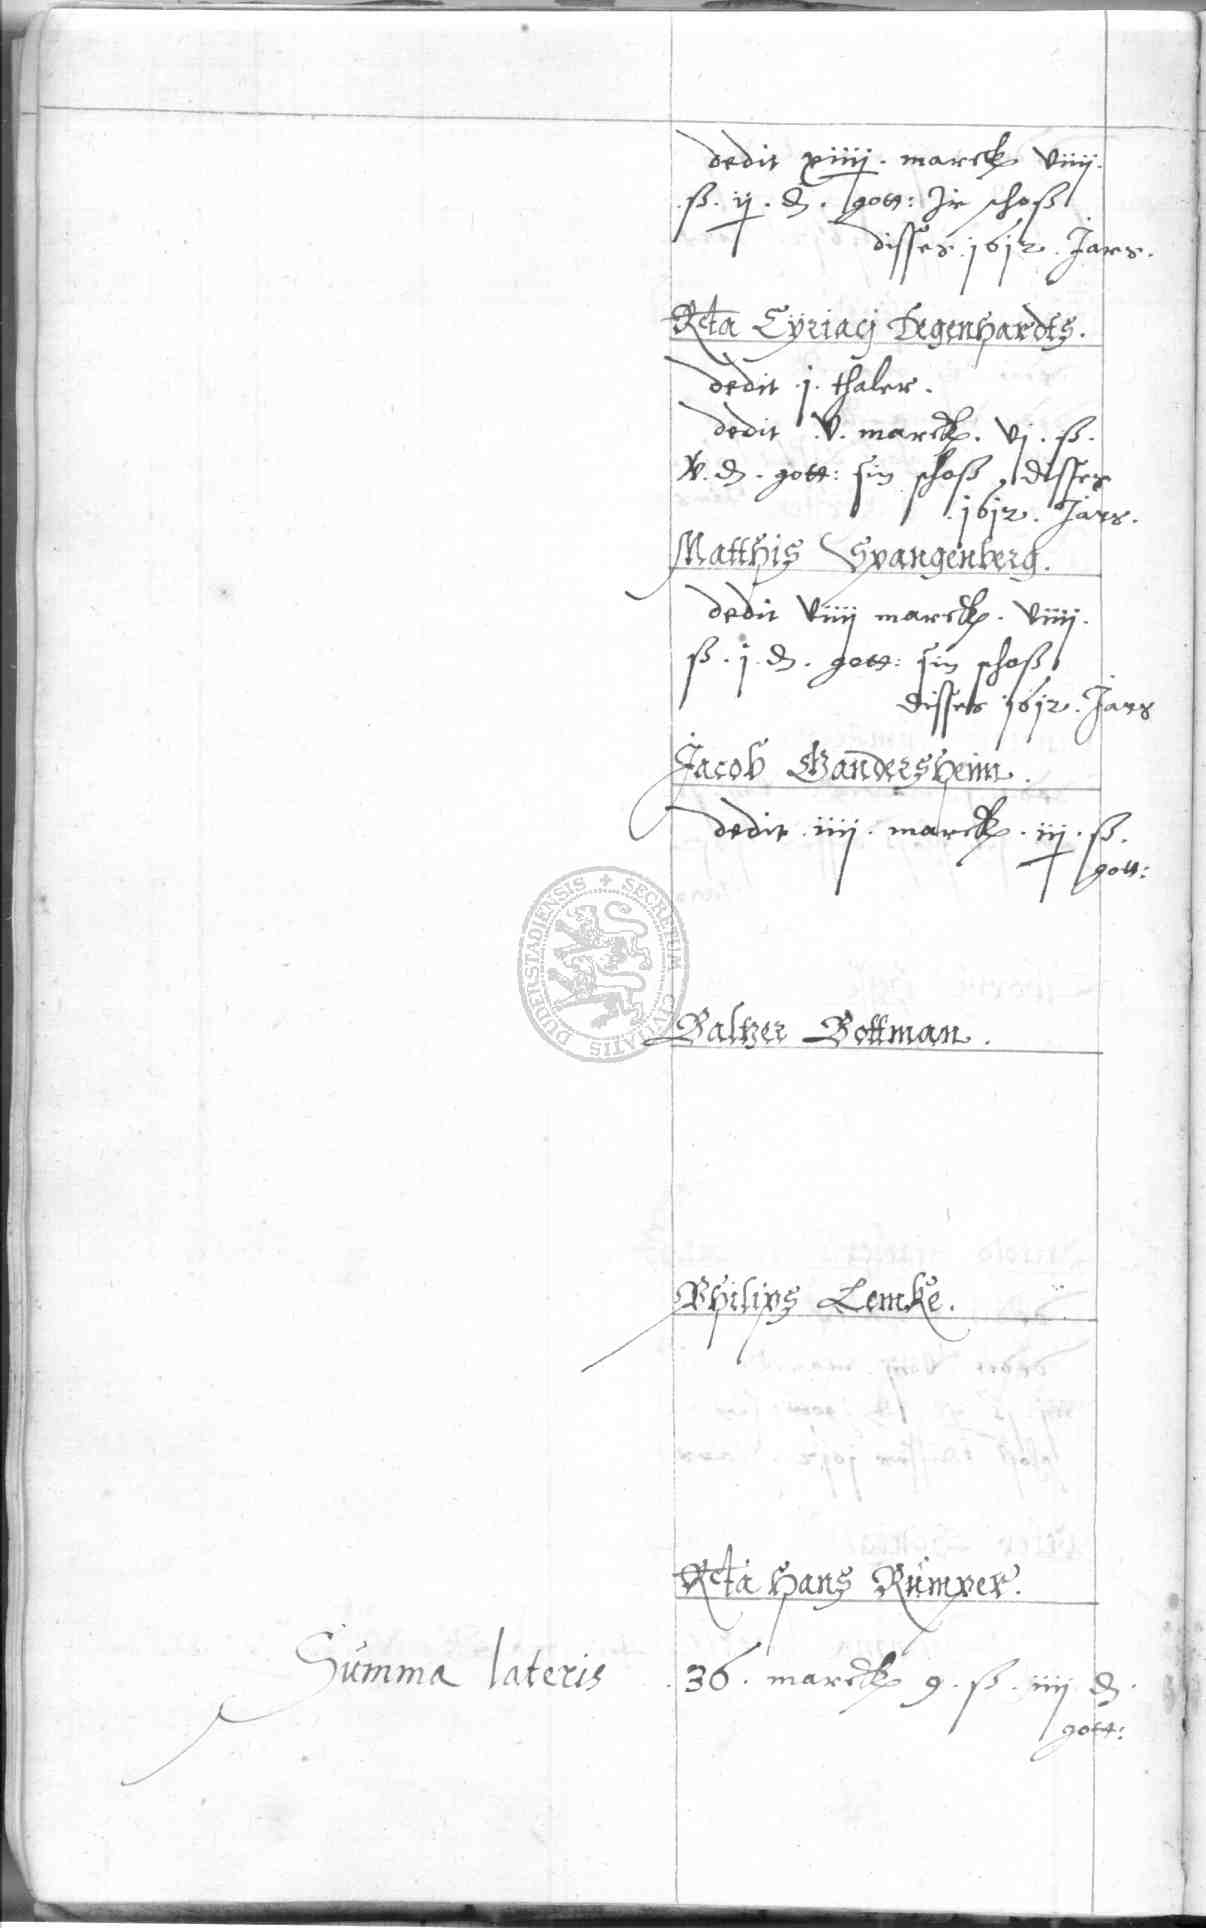 dedit xiiij. marck viiij.
ß. ij. ₰. gott: Ir schoß
disses 1612. Jars.
Rcta Cyriacj Degenhardts.
dedit .j. thaler.
dedit .v. marck. vj. ß.
v. ₰. gott: sin schoß disses
.1612. Jars.
Matthis Spangenberg.
dedit viiij marck. viiij.
ß. j. ₰. gott: sin schoß
disses 1612. Jars
Jacob Gandersheim.
dedit .iiij. marck. iij. ß.
gott:
SECRETUM CIVITATIS DUDERSTADIENSIS
Baltzer Bottman.
Philips Lemke.
Rcta Hans Rümper.
Summa lateris .36. marck 9. ß. iiij ₰.
gott: